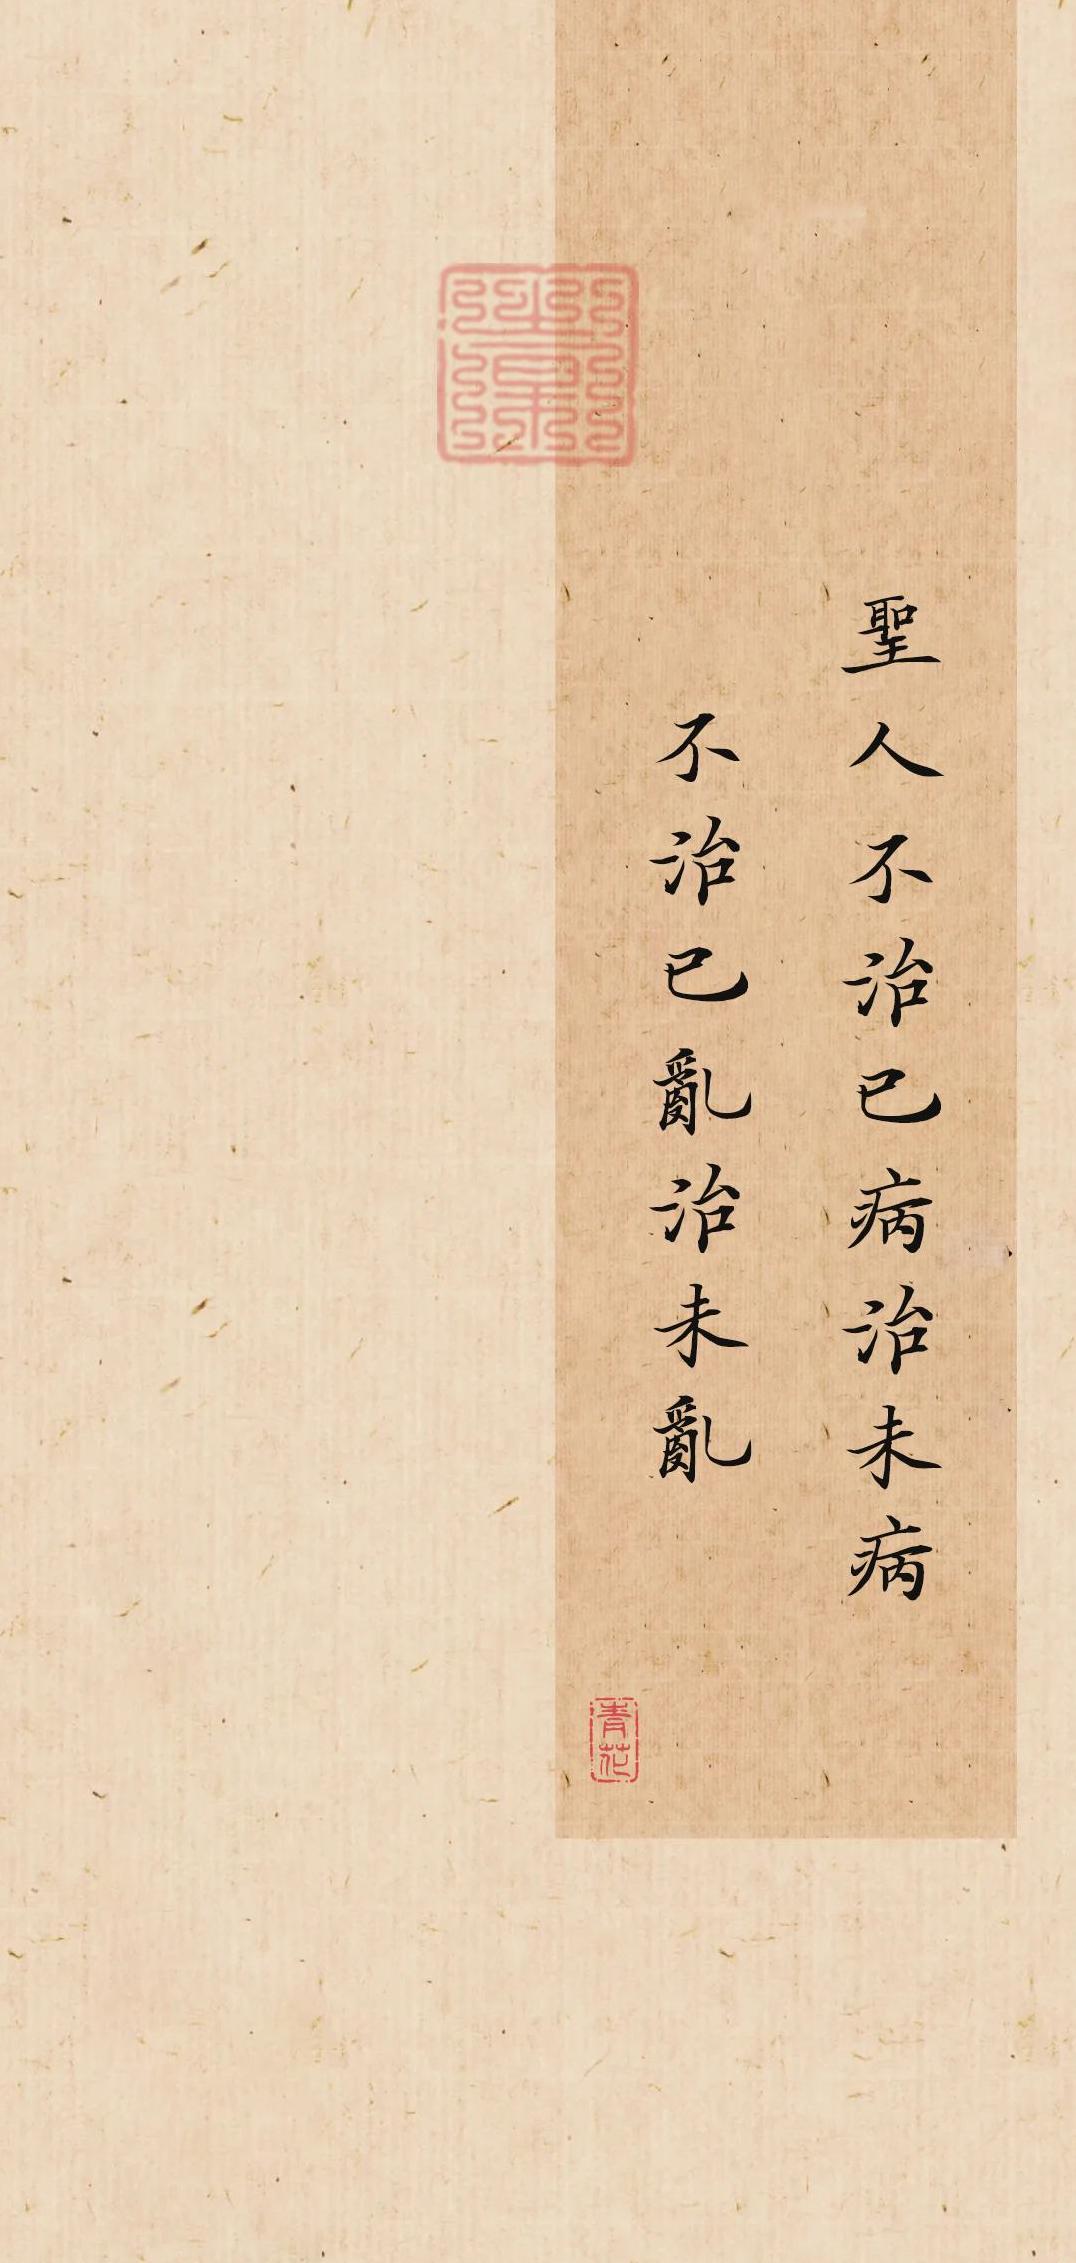 聖人不治已病治未病
不治已亂治未亂
青花